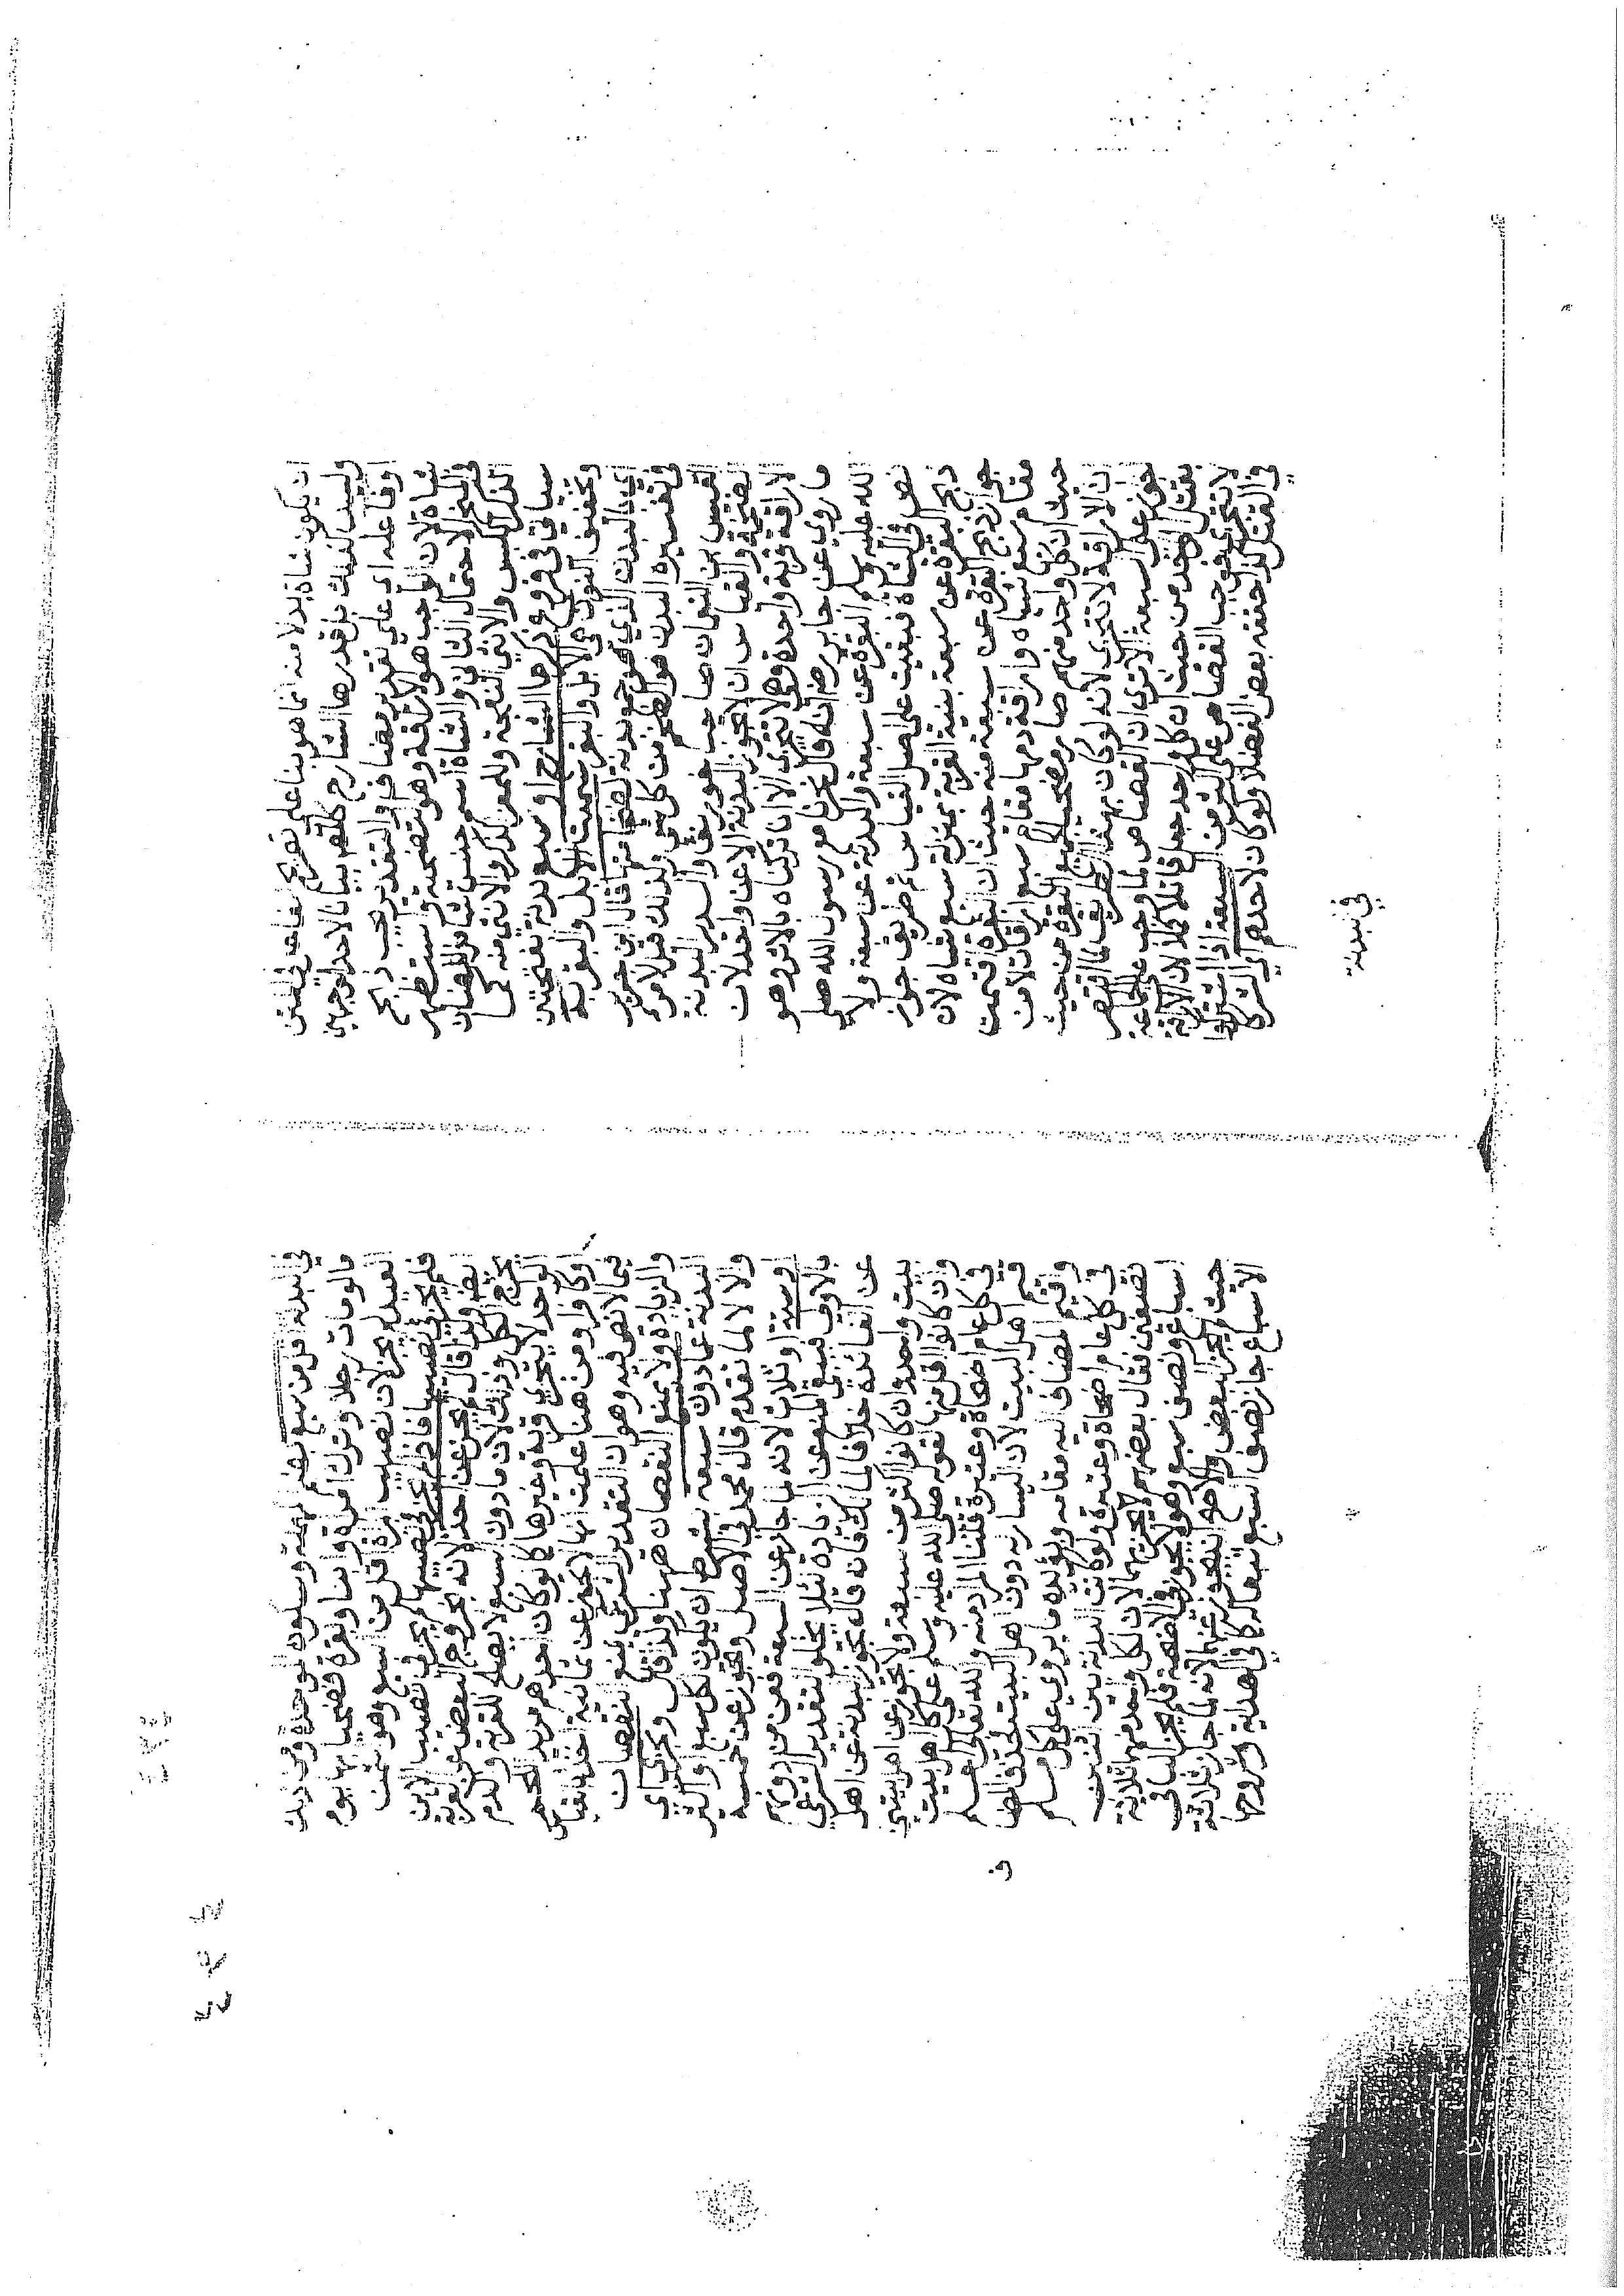 ان يكون شاة بدلا منه انما هو بنا على في المتن
وليس كذلك بل قدرها الشارح كلهم بيانا لاحد الوجهين
او فاعله اى على تقدير مضاف والتقدير يجب ذبح
شاة لان الواجب هو الاراقة وهو تضحية واستظهر
في المنح الاحتمال الثانى والشاة اسم جنس الضان
الذكر الكبش والانثى النعجة وللمعز الذكر والانثى منه كما
سياتي في فروع ذكرها الشارح او سبع بدنة بفتحتين
وتخفيف النون هي الابل والبقر سميت الابل والبقر به
اي بالبدن الذي هو جمع بدنة لضخامتها قال ابن جرير
في تفسيره البدن هو الضخم من كل شي ولذلك قيل لامرئ
القيس بن النعمان صاحب خورنق والسدير البدن
لضخمه والقياس ان لا تجوز البدنة الا عن واحد لان
الاراقة قربة واحدة وهي لا تتجزى الا انا تركناه بالاثر وهو
ما روي عن جابر رضه انه قال نحرنا مع رسول الله صلى
الله عليه وسلم البقرة عن سبعة والبدنة عن سبعة ولا
نص في الشاة فبقيت على اصل القياس ثم طريق جواز
ذبح البقرة عن سبعة بنية القربة بمنزلة سبع شياه لان
جواز ذبح البقرة عن سبعة منه حيث ان البقرة اقيمت
مقام سبع شياه واراقة دمها مقام سبع اراقات لا من
حيث ان كل واحد منهم صار مضحيا بجميع البقرة من حيث
ان الاراقة لا تتجزى لانه لو كان بهذا الطريق لما اقتصر
الجواز على السبعة الا ترى ان القصاص لما وجب على الجماعة
بقتل الواحد من حيث ان كل واحد جعل قاتلا كملا لان الاراقة
لا تتجزى فوجب القصاص على اكثر من السبعة اذا اشتركوا
في القتل كذا حققه بعض الفضلا ولو كان لاحدهم اي الشركا
في البدنة
في البدنة اقل من سبع بضم المهملة وسكون الموحدة ومن ذلك
ما لو مات رجل وترك امراة وابنا وبقرة فضحيا بها يوم
العيد لم يجز لان نصيب المراة اقل من السبع وهو الثمن
فلم يجز في نصيبها فاذا لم يجز في نصيبها لم يجز في نصيب الابن
ايضا ولذا قال لم يجز عن احد لانه بخروج البعض عن القربة
يخرج الكل وذلك لان ما دون السبع لا يصلح للقربة والدم
الواحد لا يتجزى قربة وغيرها كما لو كان احدهم مريد اللحم
او كافرا ومن هنا علمت انها لا تجوز عن ثمانية اخذا بالقياس
فيما لا نص فيه وهو ان التقدير الشرعي يمنع النقصان
والزيادة ولا يمنع النقصان ههنا ولذا قال وتجزي اي
البدنة عما دون سبعة بشرط ان يكون لكل سبع واكثر
والا لا لما تقدم قال محمد في الاصل وتجوز عن خمسة
او ستة او ثلاث لانه لما جاز عن السبعة فعن من دونهم
بالاولى فبقي المنع عن الزيادة لئلا يخلو التقدير الشرعي
عن الفائدة خلافا لمالك فانه قال تجوز البدنة عن اهل
بيت واحد وان كانوا اكثر من سبعة ولا تجوز عن اهل بيتين
وان كانوا اقل منها لقوله صلى الله عليه وسلم على كل اهل بيت
في كل عام اضحاة وعتيرة قلنا المراد منه والله تعالى اعلم
قيم اهل البيت لان اليسار له دون اهل البيت لحذف المضاف
واقيم المضاف اليه مقامه ويؤيده ما يروى على كل مسلم
في كل عام اضحاة وعتيرة ولو كانت البدنة بين اثنين
نصفين فقال بعضهم لا يجزيهما لان لكل واحد منهما ثلاثة
اسباع ونصف سبع وهو لا يجوز في الاضحية فلم يجز الباقي
حيث لم يجز البعض والاصح انه يجوز عنهما لانه لما جاز ثلاثة
الاسباع جاز نصف السبع تبعا له كما في الهداية وشروحها